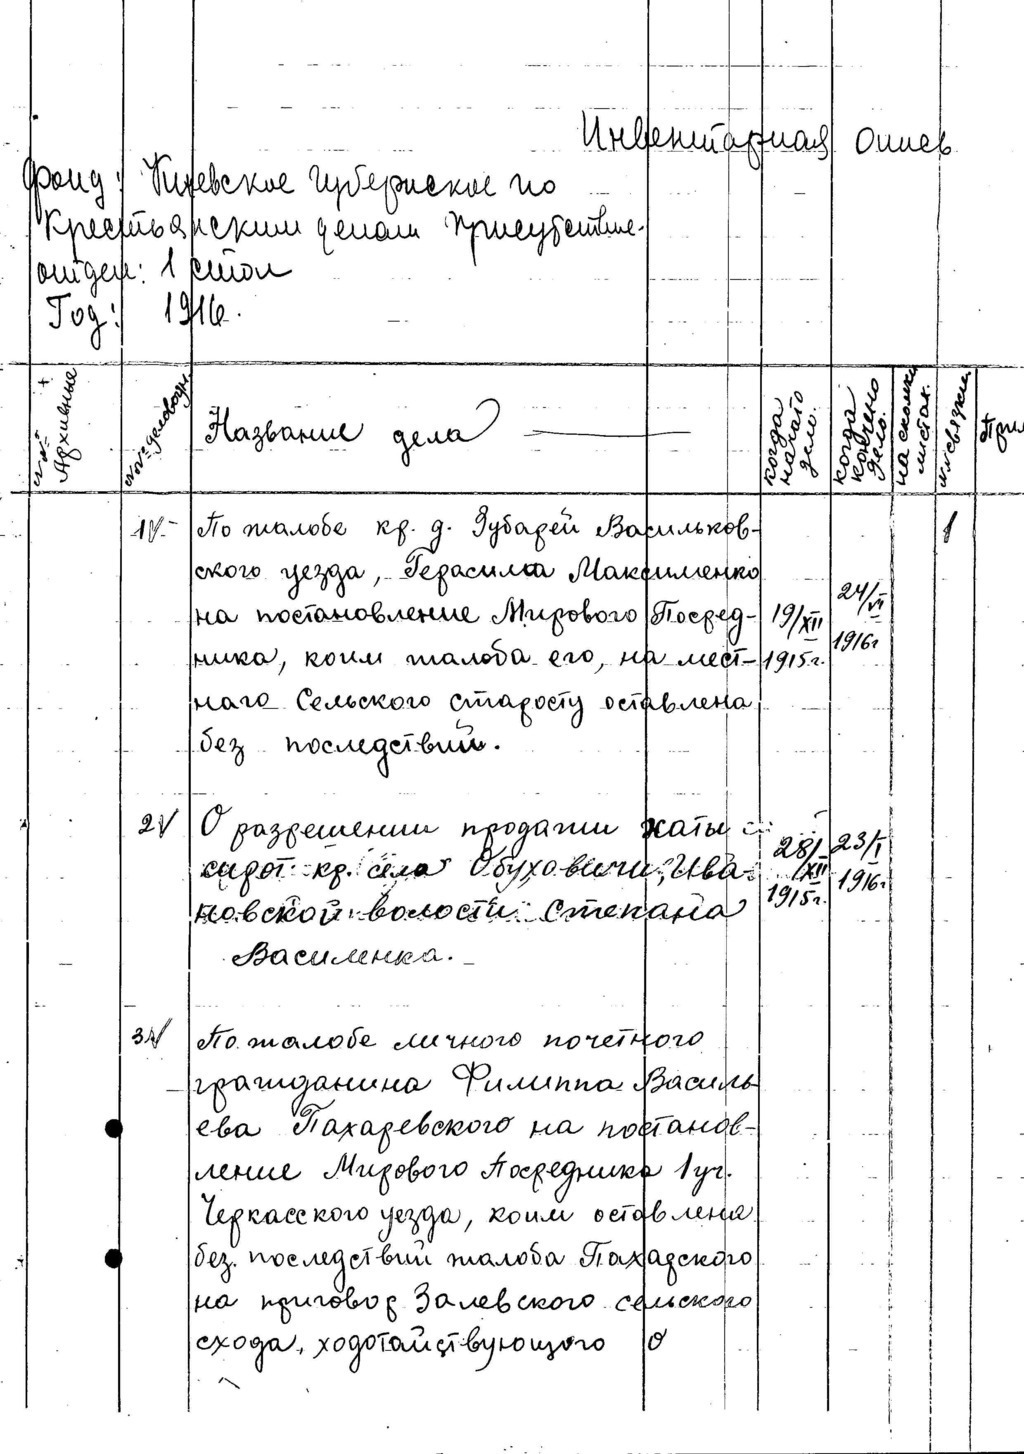 Инвентарная Опись
Фонд: Киевское губернское по
Крестьянским делам Присутствие.
отдел: 1 стол
Год: 1916.
№№ Архивные
№№ деловодн.
Название дела
когда начато дело.
когда кончено дело.
на скольки листах.
№№ связки
При
1 По жалобе кр. д. Зубарей Васильков- 1
ского уезда, Герасима Максименко
на постановление Мирового Посред- 19/XII 24/VI
ника, коим жалоба его, на мест- 1915г. 1916г
наго Сельского старосту оставлена
без последствий.
2 О разрешении продажи хаты
сирот кр. села Обуховичи, Ива- 28/XII 23/I
новской волости Степана 1915г. 1916г
Василенка.
3 По жалобе личного почетного
гражданина Филиппа Василь
ева Пахаревского на постанов-
ление Мирового Посредника 1 уч.
Черкасского уезда, коим оставлена
без последствий жалоба Пахарского
на приговор Залевского сельского
схода, ходотайствующого о